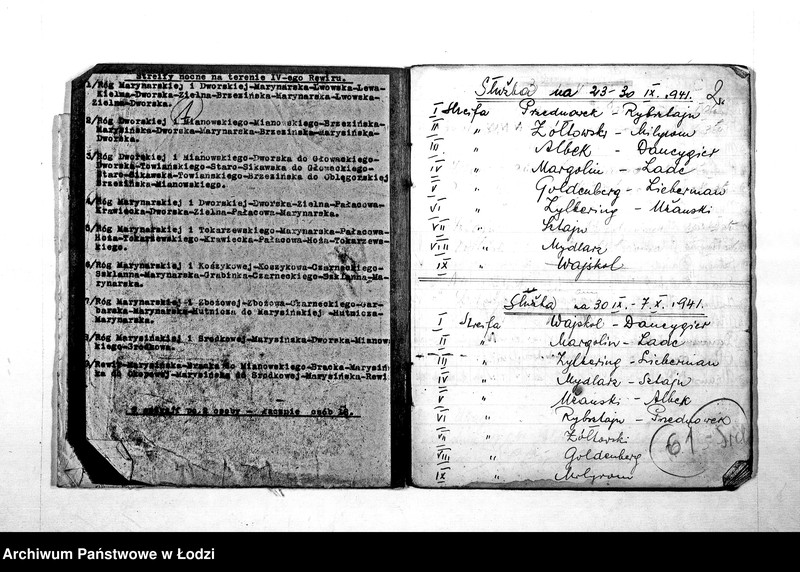 Streify nocne na terenie IV-ego Rewiru.
1/Róg Marynarskiej i Dworskiej-Marynarska-Lwowska-Lewa-
Kielma-Dworska-Zielna-Brzezińska-Marynarska-Lwowska-
Zielna-Dworska.
2/Róg Dworskiej i Mianowskiego-Mianowskiego-Brzezińska-
Marysińska-Dworska-Marynarska-Brzezińska-marysińska-
Dworska.
3/Róg Dworskiej i Mianowskiego-Dworska do Głowackiego-
Dworska-Towiańskiego-Staro-Sikawska do Głowackiego-
Staro-Sikawska-Towiańskiego-Brzezińska do Oblęgorskiej
Brzezińska-Mianowskiego.
4/Róg Marynarskiej i Dworskiej-Dworska-Zielna-Pałacowa-
Krawiecka-Dworska-Zielna-Pałacowa-Marynarska.
5/Róg Marynarskiej i Tokarzewskiego-Marynarska-Pałacowa-
Hoża-Tokarzewskiego-Krawiecka-Pałacowa-Hoża-Tokarzews-
kiego.
6/Róg Marynarskiej i Koszykowej-Koszykowa-Czarneckiego-
Szklanna-Marynarska-Grabinka-Czarneckiego-Szklanna-Ma-
rynarska.
7/Róg Marynarskiej i Zbożowej-Zbożowa-Czarneckiego-Gar-
barska-Marynarska-Mutnicza do Marysińskiej -Mutnicza-
Marynarska.
8/Róg Marysińskiej i Środkowej-Marysińska-Dworska-Mianows
kiego-Środkowa.
9/Rewir-Marysińska-Bracka do Mianowskiego-Bracka-Marysiń
ka do Okopowej-Marysińska do Środkowej-Marysińska-Rewi
9 streif po 2 osoby - łącznie osób 18.
Służba na 23-30 IX. 1941. 2.
I Streifa Przednorek - Rybsztajn
II " Żółtowski - Milgrom
III " Albek - Dancygier
IV " Margolin - Ladc
V " Goldenberg - Lieberman
VI " Zylbering - Użanski
VII " Sztajn
VIII " Mydlarz
IX " Wajskol
Służba na 30 IX. - 7 X. 1941.
I Streifa Wajskol - Dancygier
II " Margolin - Ladc
III " Zylbering - Lieberman
IV " Mydlarz - Sztajn
V " Użanski - Albek
VI " Rybsztajn - Przednorek
VII " Żółtowski
VIII " Goldenberg
IX " Milgrom
61
Archiwum Państwowe w Łodzi